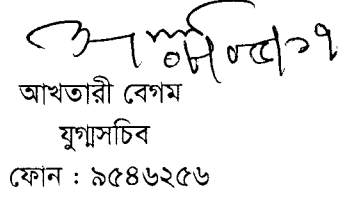 আখতারী বেগম
যুগ্মসচিব
ফোন : ৯৫৪৬২৫৬